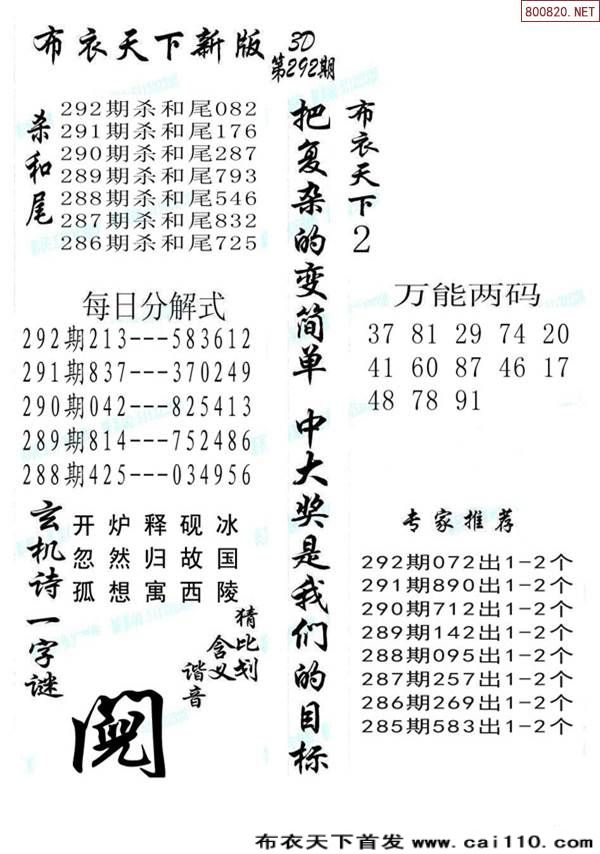 800820.NET
布衣天下新版 3D
第292期
杀和尾
292期杀和尾082
291期杀和尾176
290期杀和尾287
289期杀和尾793
288期杀和尾546
287期杀和尾832
286期杀和尾725
每日分解式
292期213---583612
291期837---370249
290期042---825413
289期814---752486
288期425---034956
玄机诗一字谜
开炉释砚冰
忽然归故国
孤想寓西陵
猜比划
含义
谐音
把复杂的变简单 中大奖是我们的目标
布衣天下2
万能两码
37 81 29 74 20
41 60 87 46 17
48 78 91
专家推荐
292期072出1-2个
291期890出1-2个
290期712出1-2个
289期142出1-2个
288期095出1-2个
287期257出1-2个
286期269出1-2个
285期583出1-2个
布衣天下首发 www.cai110.com